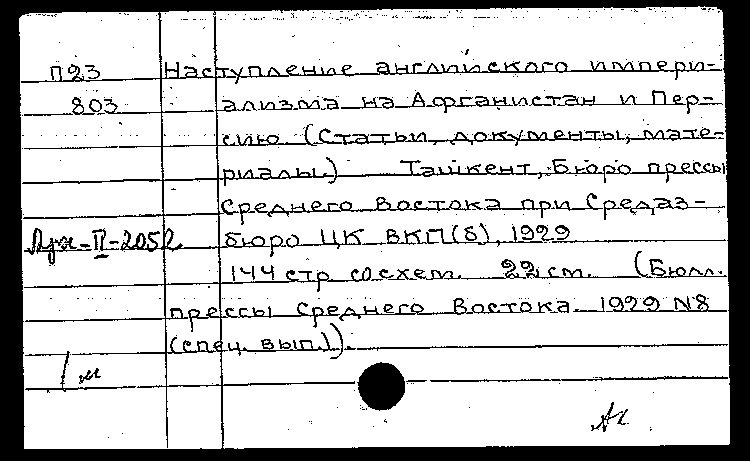 П23 Наступление английского импери-
803 ализма на Афганистан и Пер-
сию. (Статьи, документы, мате-
риалы.) Ташкент, Бюро прессы
Среднего Востока при Средаз-
Арх-II-2052 бюро ЦК ВКП(б), 1929
144 стр со схем. 22 см. (Бюлл.
прессы Среднего Востока. 1929 N8
(спец. вып.)).